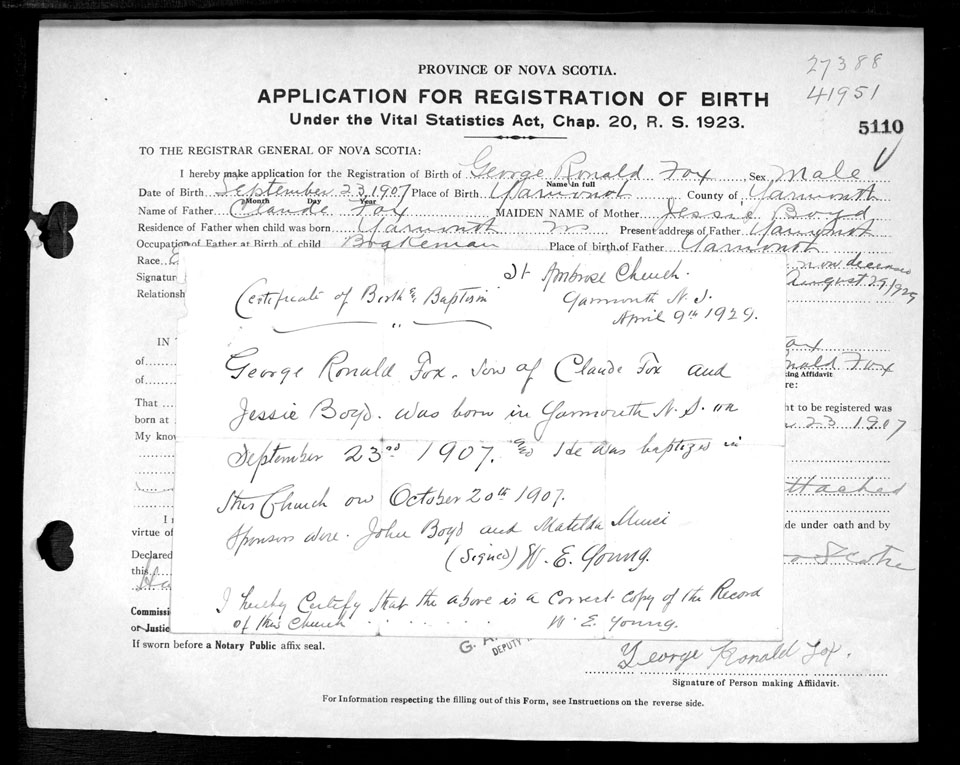 27388
41951
PROVINCE OF NOVA SCOTIA.
APPLICATION FOR REGISTRATION OF BIRTH
Under the Vital Statistics Act, Chap. 20, R. S. 1923.
5110
TO THE REGISTRAR GENERAL OF NOVA SCOTIA:
I hereby make application for the Registration of Birth of George Ronald Fox Sex Male
Name in full
Date of Birth September 23, 1907 Place of Birth Yarmouth County of Yarmouth
Month Day Year
Name of Father Claude Fox MAIDEN NAME of Mother Jessie Boyd
Residence of Father when child was born Yarmouth Present address of Father Yarmouth
Occupation of Father at Birth of child Brakeman Place of birth of Father Yarmouth
Race now deceased
Signature August 29/1929
Relationship
St Ambrose Church.
Certificate of Birth & Baptism
Yarmouth N.S.
April 9th 1929.
George Ronald Fox. Son of Claude Fox and
Jessie Boyd. was born in Yarmouth N.S. on
September 23rd 1907. and He was baptized in
this Church on October 20th 1907.
Sponsors were. John Boyd and Matilda
(Signed) W. E. Young.
I hereby Certify that the above is a correct copy of the Record
of this Church . . . . . . . W. E. Young.
IN
of Fox
of Ronald Fox
making Affidavit
That ht to be registered was
born at 23 1907
My know
attached
I
de under oath and by
virtue of
Declared Scotia
this
Commissi
or Justice
DEPUTY
If sworn before a Notary Public affix seal.
George Ronald Fox.
Signature of Person making Affidavit.
For Information respecting the filling out of this Form, see Instructions on the reverse side.